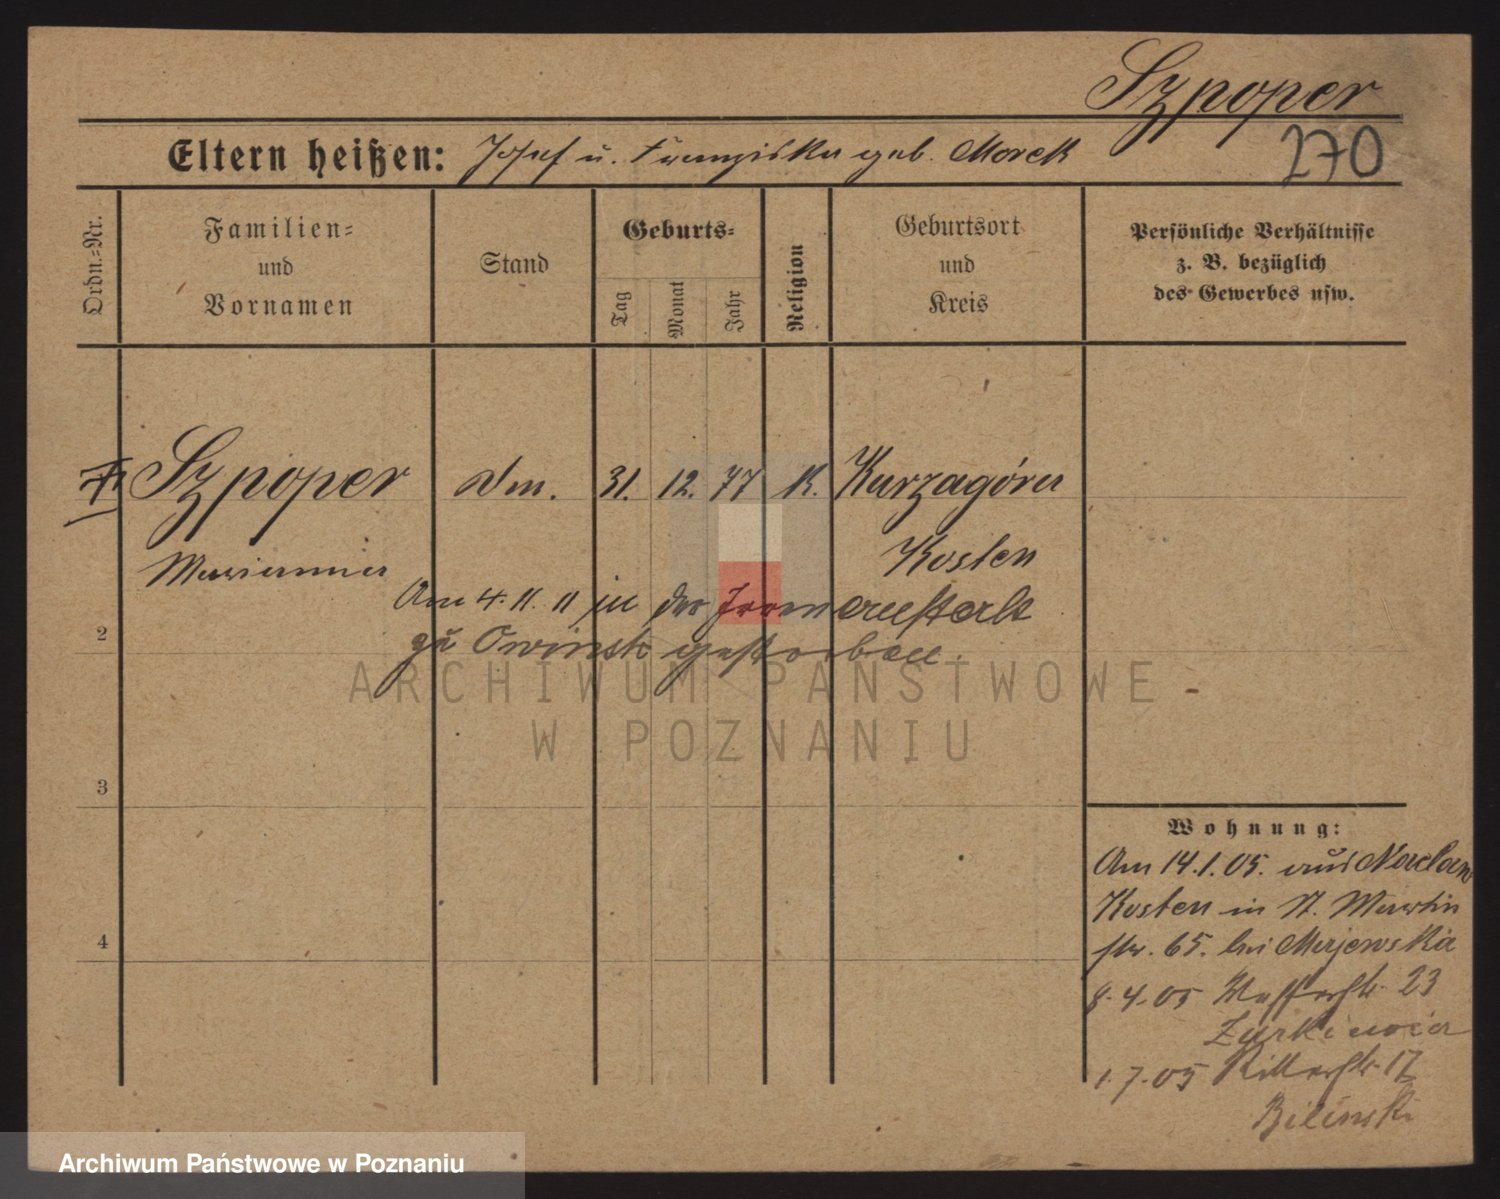 Szpoper
270
Eltern heißen: Josef u. Franziska geb. Morek
Ordn.-Nr.
Familien=
und
Vornamen
Stand
Geburts=
Tag
Monat
Jahr
Religion
Geburtsort
und
Kreis
Persönliche Verhältnisse
z. B. bezüglich
des Gewerbes usw.
Szpoper 31. 12. 77 K. Kurzagóra
Marianna Kosten
Am 4. 11. 11 in der Irrenanstalt
zu Owinsk gestorben.
2
3
4
ARCHIWUM PAŃSTWOWE
W POZNANIU
Wohnung:
Am 14.1.05. aus
Kosten in St. Martin
str. 65. bei Majewska
8.4.05 Wasserstr. 23
1.7.05 Ritterstr. 17
Bilinski
Archiwum Państwowe w Poznaniu